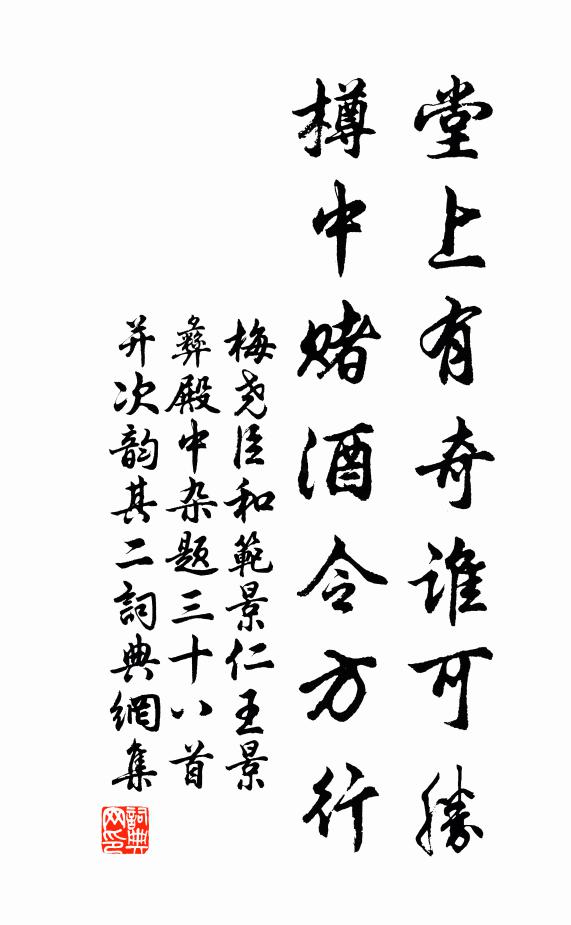 堂上有奇谁可勝
樽中赌酒令方行
梅尧臣和範景仁王景
彝殿中杂题三十八首
并次韵其二詞典網集
詞典
网印